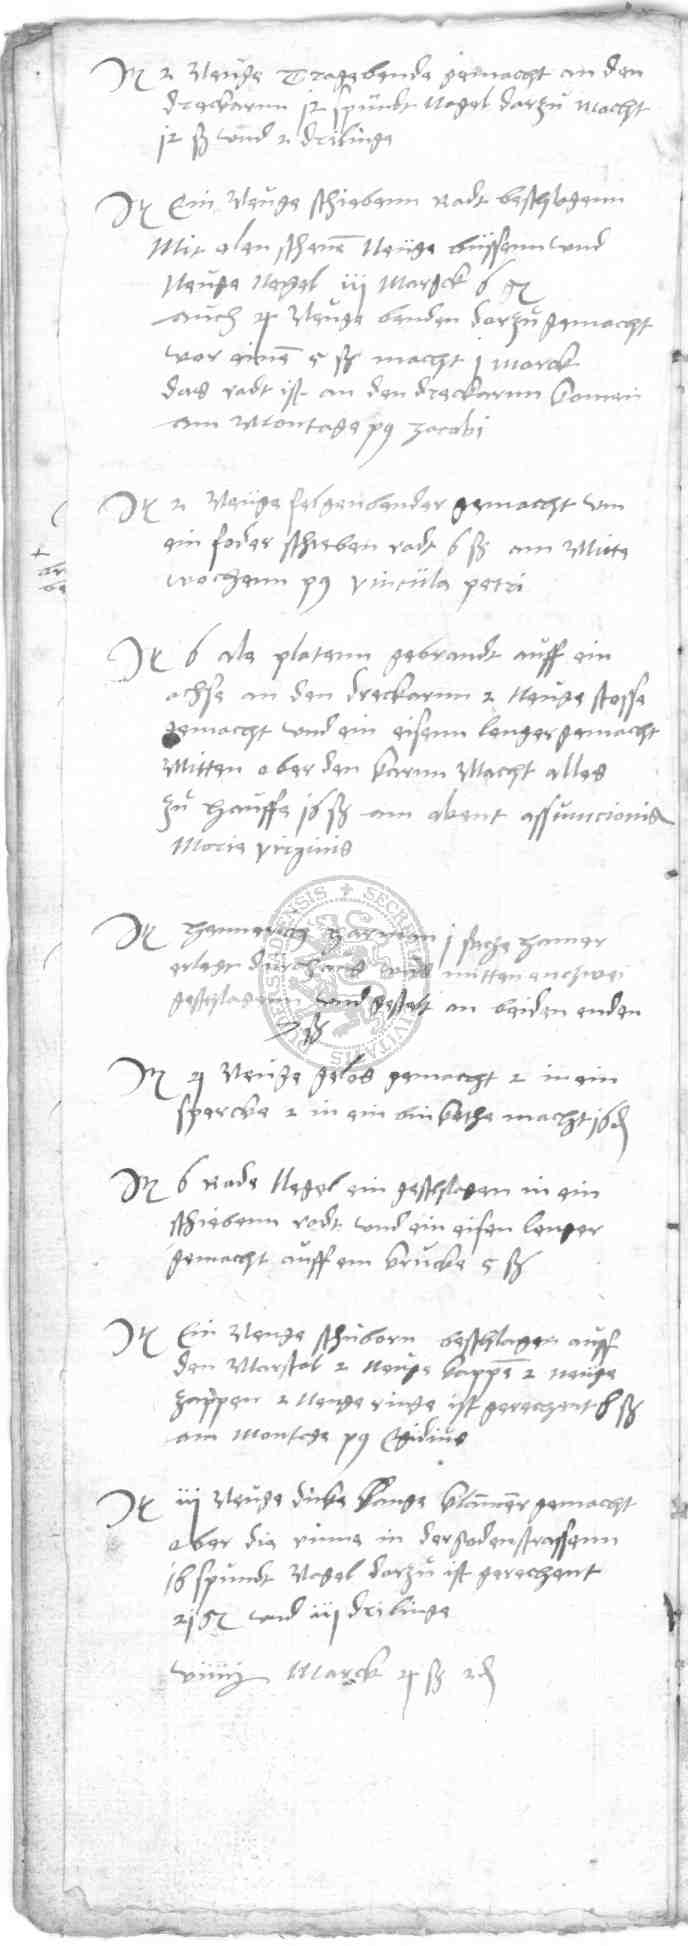 Jt 2 Neuge Tragebende gemacht an den
dreckarnn j2 spundt Nagel darzu macht
j2 ß und 2 drilinge
Jt Ein Neuge schiebenn radt beschlagenn
Mit alen schenē Neuge bussenn und
Neuge Negel iij Marck 6 gr
auch 4 Neuge benden darzu gemacht
vor einē 5 ß macht j marck
das radt ist an den dreckarnn komen
am Montage p9 Jacobi
Jt 2 Neuge felgenbender gemacht um
ein foder schieben radt 6 ß am Mitte
wochenn p9 vincula petri
Jt 6 ale platenn gebrandt auff ein
achse an den dreckarnn 2 Neuge stosse
gemacht und ein eisenn lenger gemacht
Mitten ober den karnn Macht alles
zu hauffe j6 ß am abent assumcionis
Marie virginis
Jt j hamer
mitten enczwei
und an beiden enden
7 ß
Jt 4 Neuge gemacht 2 in ein
2 in ein macht j6 d
Jt 6 Rade Negel ein geschlagen in ein
schiebenn radt und ein eisen lenger
gemacht auff ein brucke 5 ß
Jt Ein Neuge schuborn beschlagen auff
den Marstal 2 Neuge kappē 2 neuge
zappen 2 Neuge ringe ist gerechent 8 ß
am Montage p9 Egidius
Jt iij Neuge dicke lange klamer gemacht
ober die rinne in der strassenn
j6 spundt Nagel darzu ist gerechent
und iij drilinge
Marck 4 ß 2 d